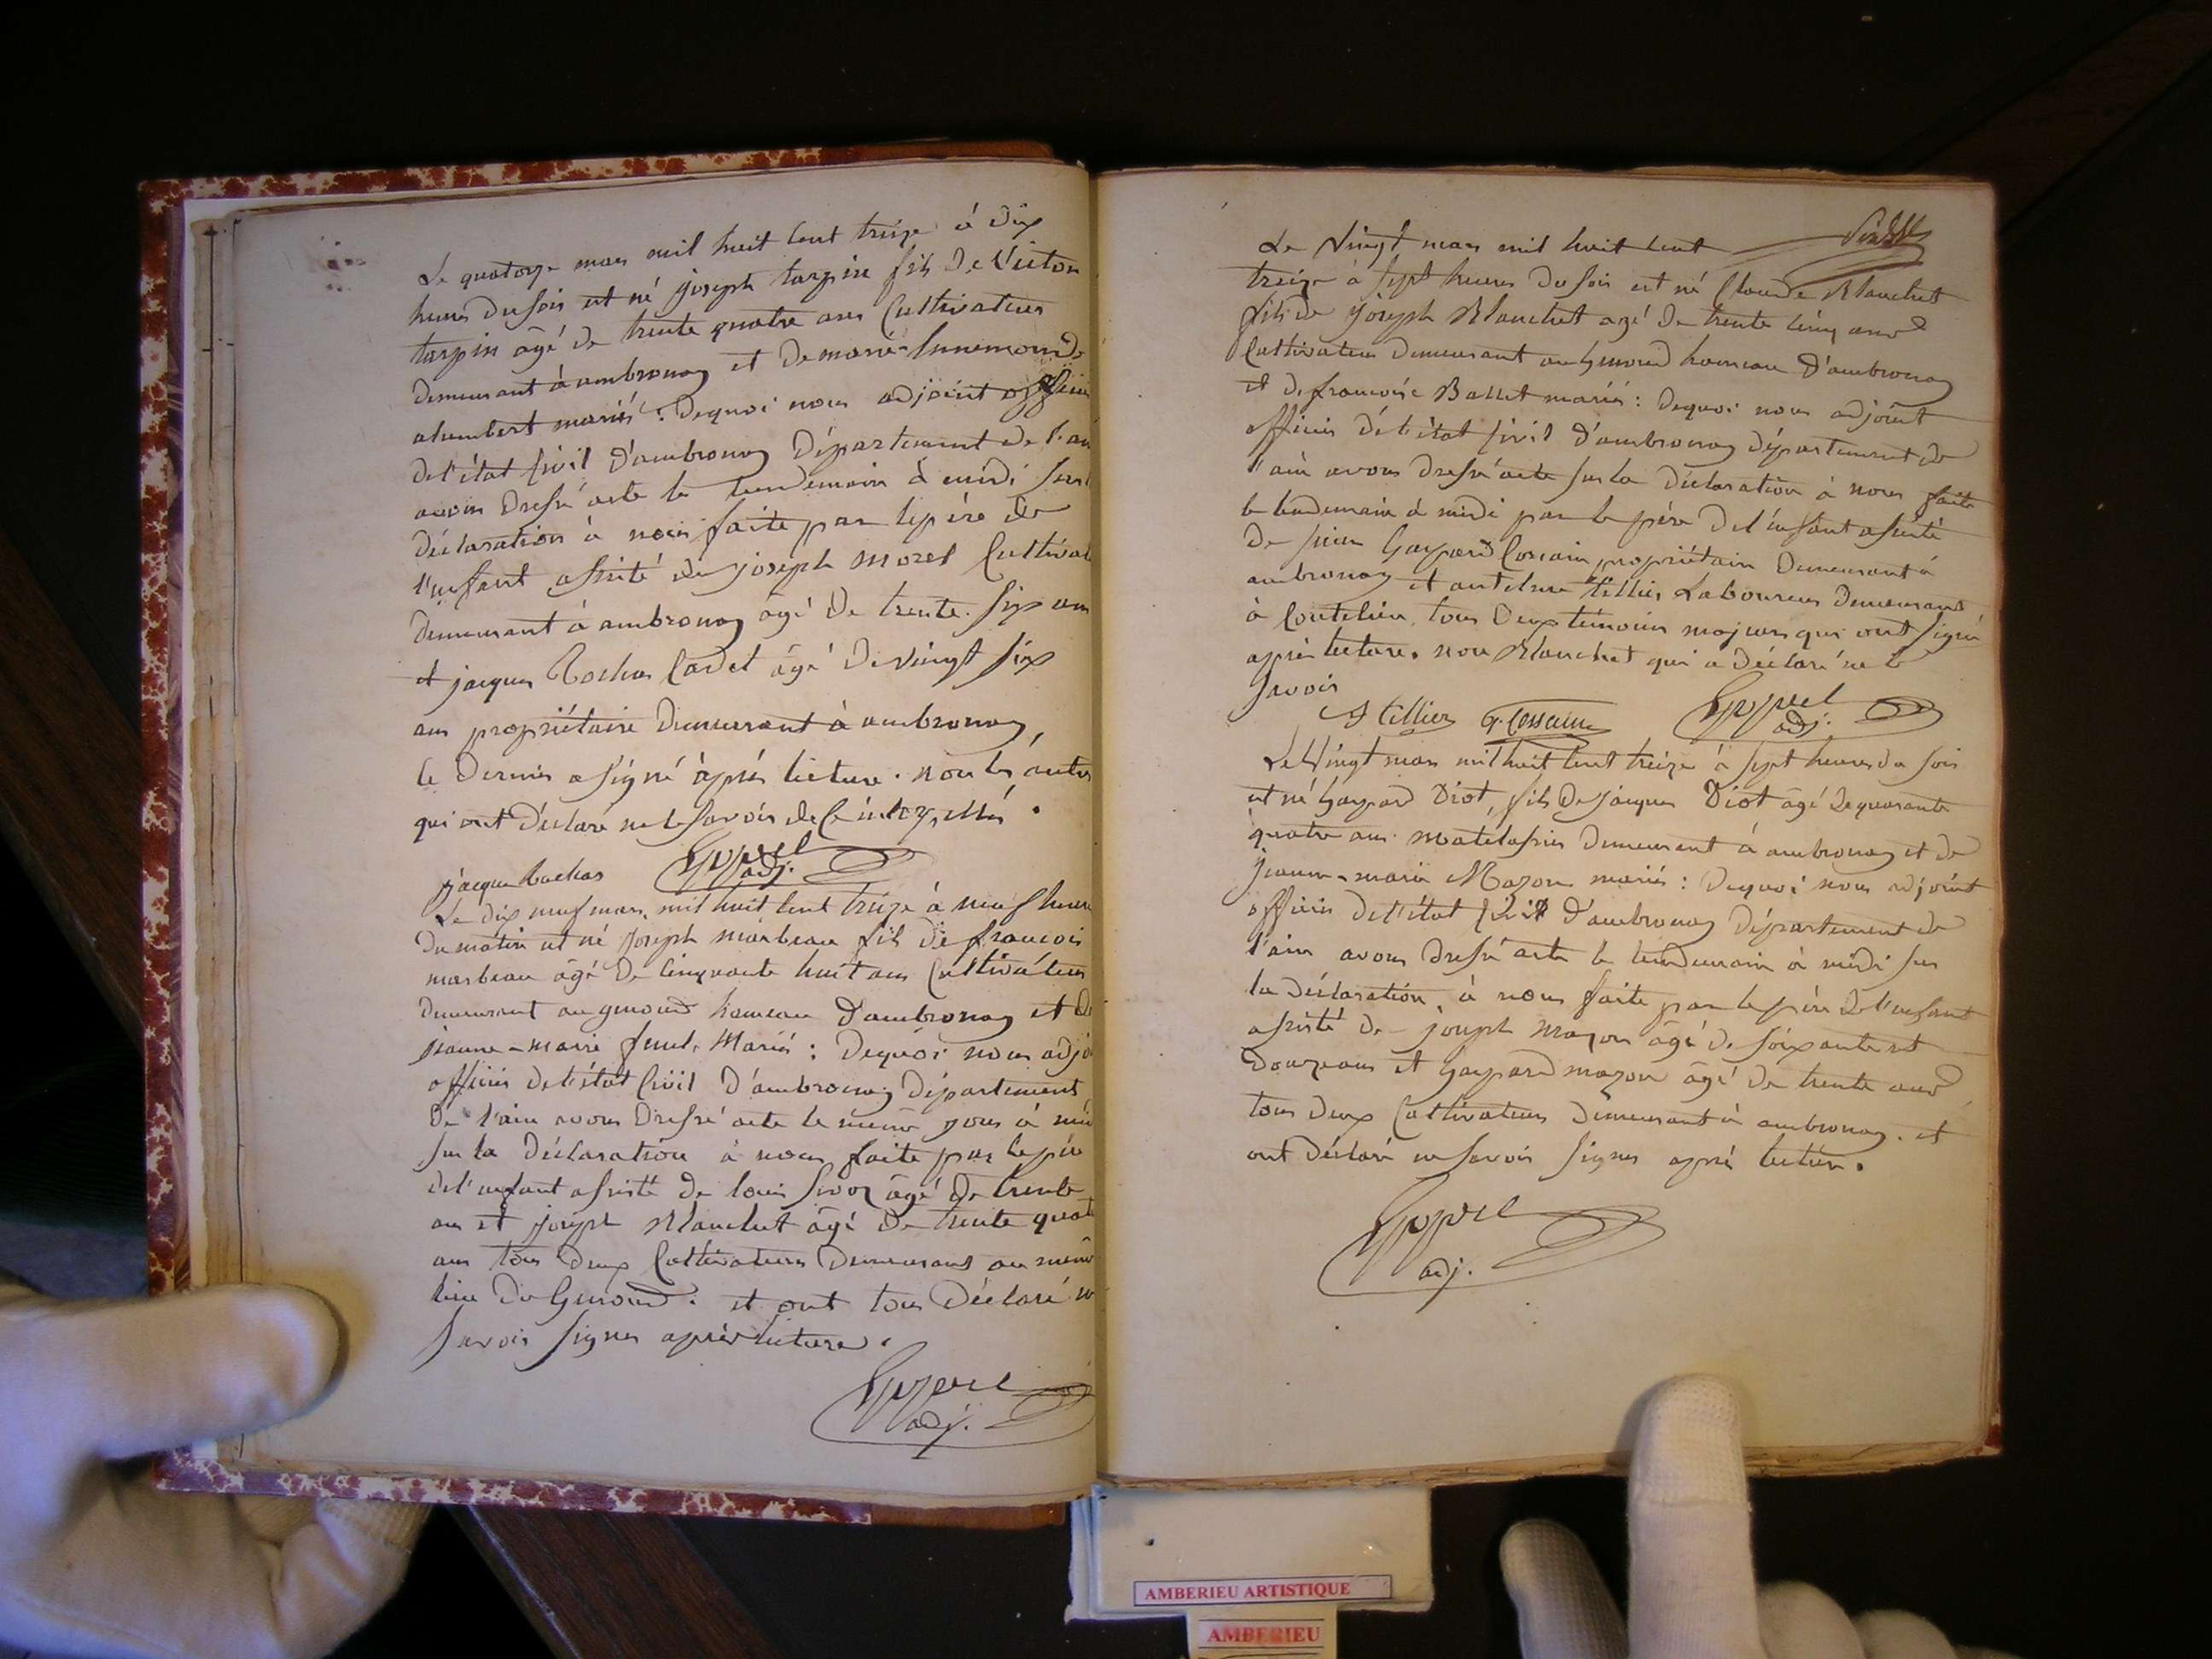 Le quatorze mars mil huit cent treize à dix
heures du soir est né joseph tarpin fils de Victor
tarpin âgé de trente quatre ans Cultivateur
demeurant à ambronay et de marie
alumbert mariés : dequoi nous adjoint officier
de l'état sivil d'ambronay département de l'ain
avons dressé acte le lendemain à midi sur
déclaration à nous faite par le père de
l'enfant assisté de joseph morel Cultivat
demeurant à ambronay âgé de trente six ans
et jacques Cadet âgé de vingt six
ans propriétaire demeurant à ambronay,
le dernier a signé après lecture. non les autres
qui ont déclaré ne le savoir de ce interpellés.
jacque adj.
Le dix neuf mars mil huit cent treize à neuf heures
du matin est né joseph marbeau fils de francois
marbeau âgé de cinquante huit ans Cultivateur
demeurant au genoud hameau d'ambronay et de
jeanne-marie mariés : dequoi nous adjo
officier de l'état Civil d'ambronay département
de l'ain avons dressé acte le même jour à mi
sur la déclaration à nous faite par le père
de l'enfant assisté de louis âgé de trente
ans et joseph Blanchet âgé de trente quat
ans tous deux Cultivateurs demeurant au même
lieu du Genoud. et ont tous déclaré ne
savoir signer après lecture.
adj.
Le Vingt mars mil huit cent
treize à sept heures du soir est né Claude Blanchet
fils de joseph Blanchet agé de trente cinq ans
Cultivateur demeurant au Genoud hameau d'ambronay
et de francoise Ballet mariés : dequoi nous adjoint
officier de l'état sivil d'ambronay département de
l'ain avons dressé acte sur la déclaration à nous faite
le lendemain à midi par le père de l'enfant assisté
de sieur Gaspard propriétaire demeurant à
ambronay et antelme tillier Laboureur demeurant
à Coutelieu, tous deux témoins majeurs qui ont signé
après lecture. non Blanchet qui a déclaré ne le
savoir
A tillier adj.
Le Vingt mars mil huit cent treize à sept heures du soir
est né Gaspard Diot, fils de jacques Diot âgé de quarante
quatre ans matelassier demeurant à ambronay et de
jeanne-marie Mazon mariés : dequoi nous adjoint
officier de l'état sivil d'ambronay département de
l'ain avons dressé acte le lendemain à midi sur
la déclaration, à nous faite par le père de l'enfant
assisté de joseph mazon âgé de soixante et
douze ans et Gaspard mazon âgé de trente ans
tous deux Cultivateurs demeurant à ambronay. et
ont déclaré ne savoir signer après lecture.
adj.
AMBERIEU ARTISTIQUE
AMBERIEU